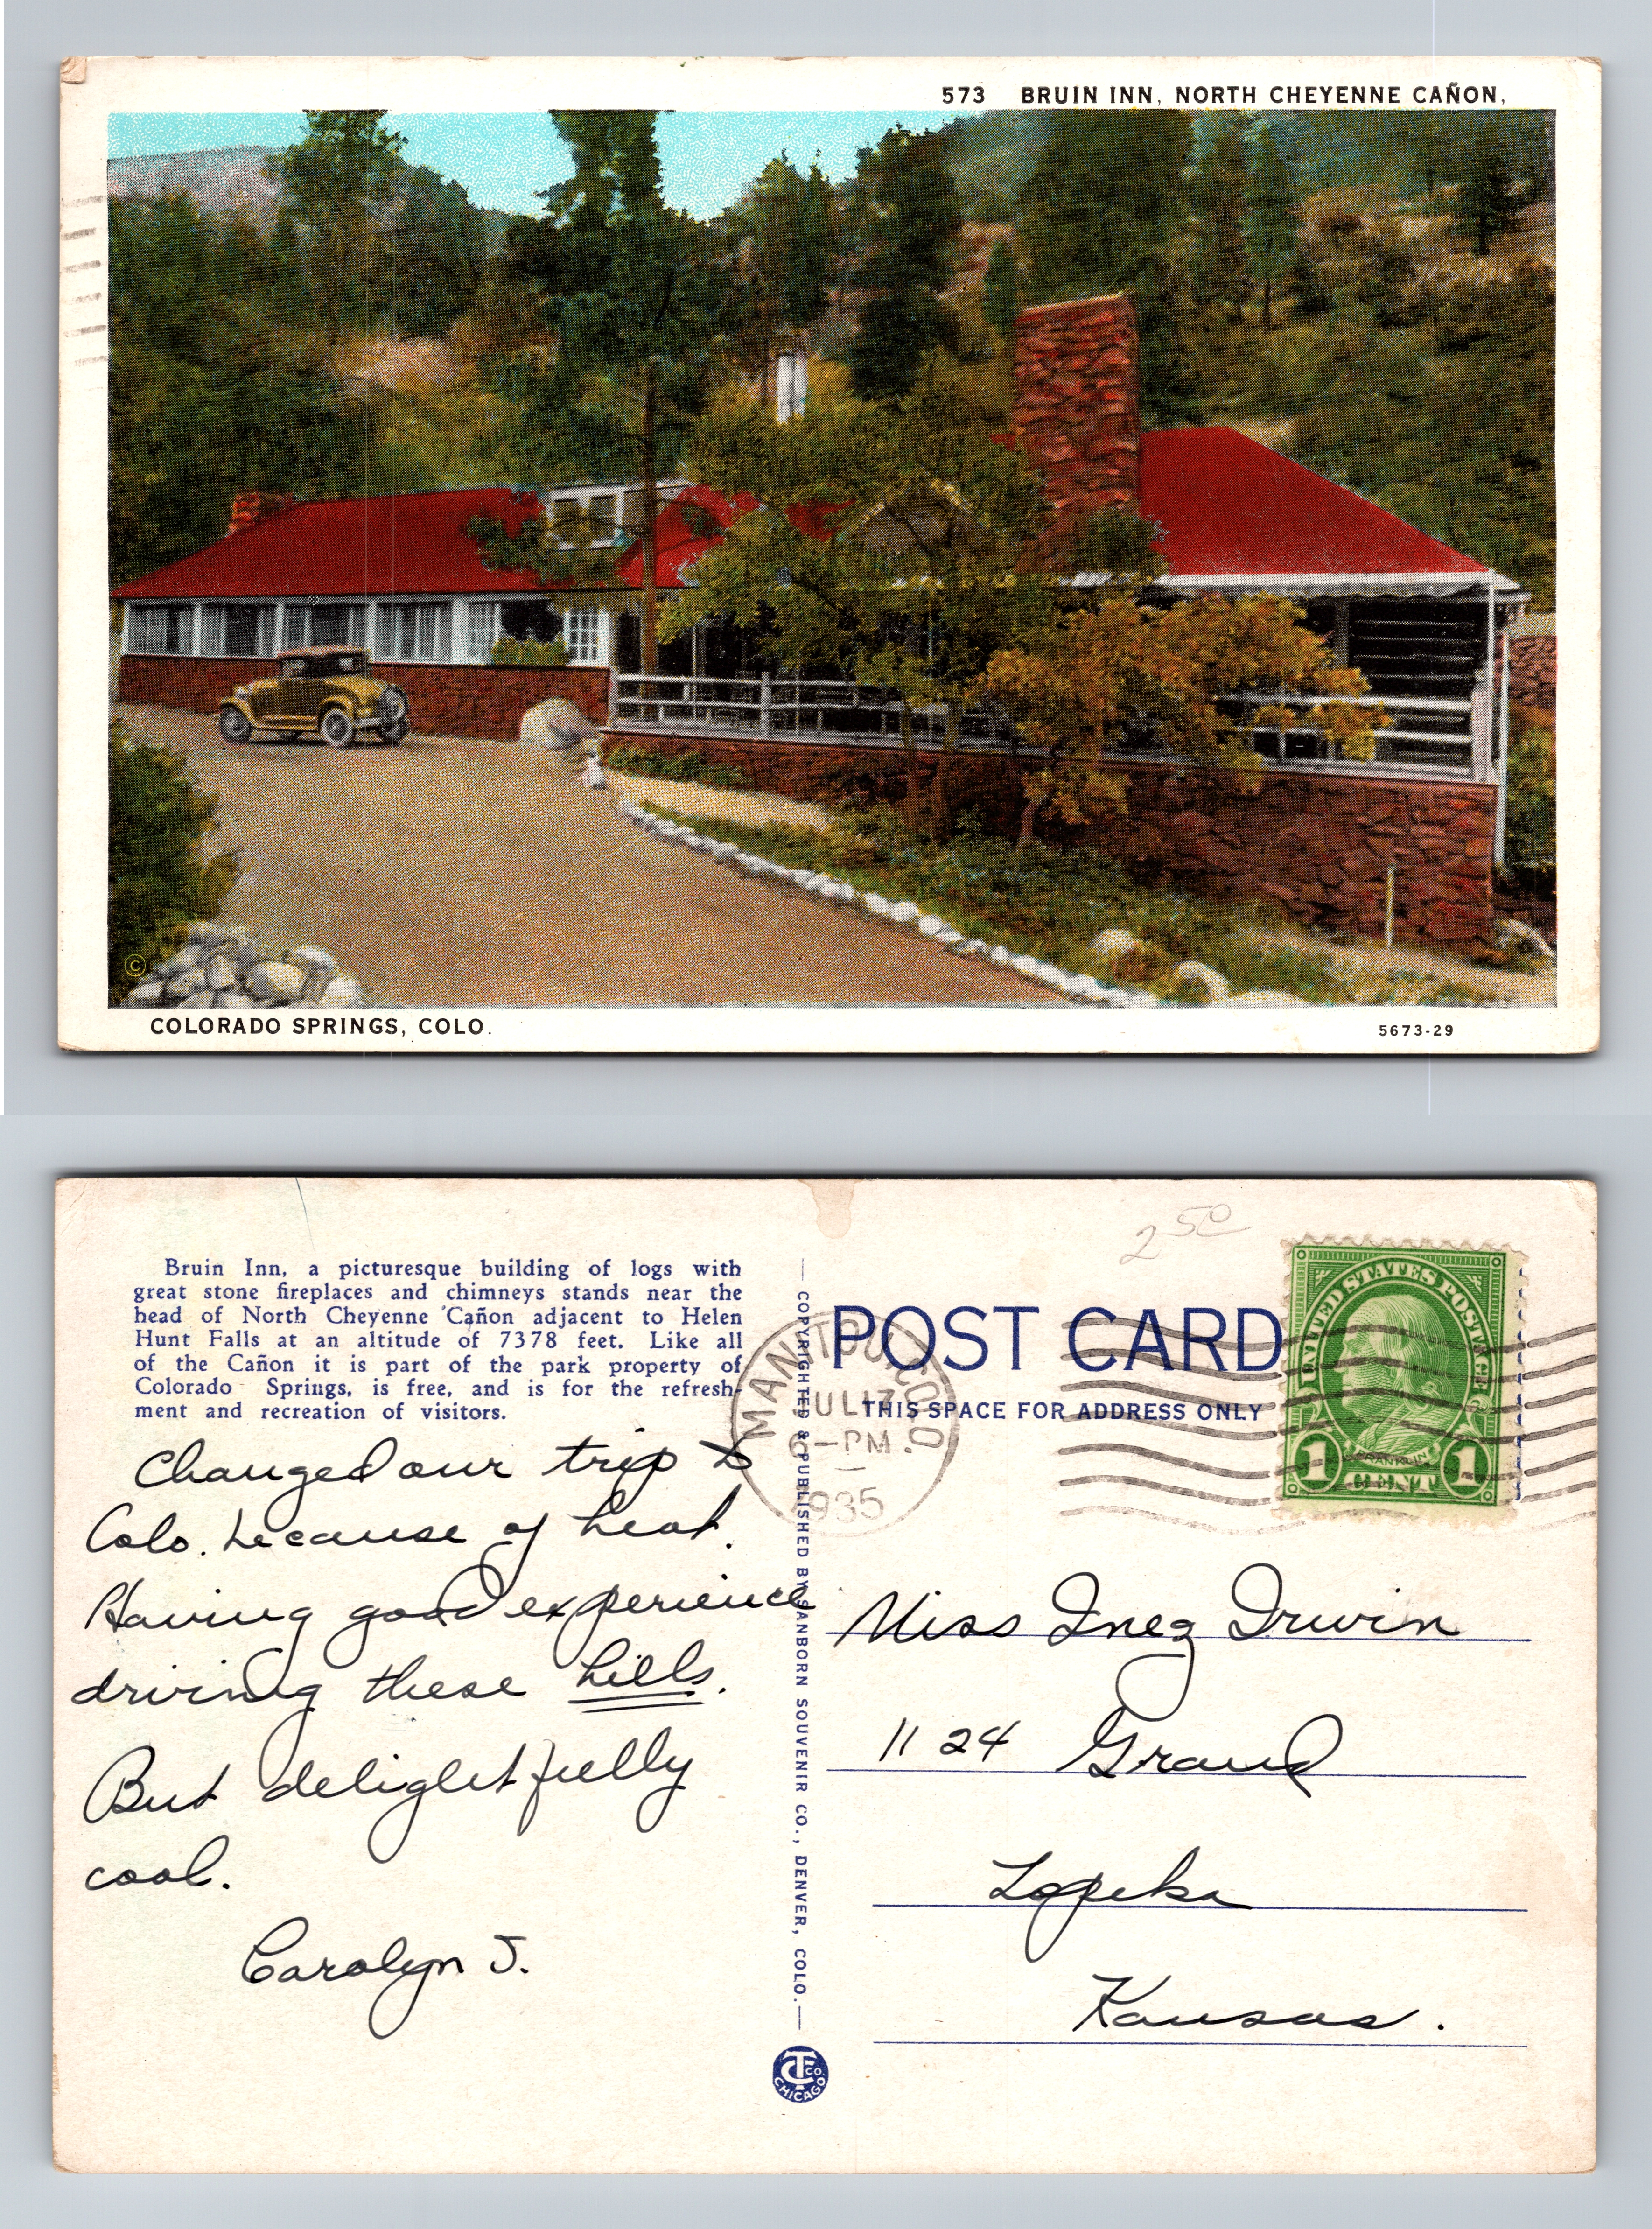 573 BRUIN INN, NORTH CHEYENNE CAÑON,
©
COLORADO SPRINGS, COLO.
5673-29
Bruin Inn, a picturesque building of logs with
great stone fireplaces and chimneys stands near the
head of North Cheyenne Cañon adjacent to Helen
Hunt Falls at an altitude of 7378 feet. Like all
of the Cañon it is part of the park property of
Colorado Springs, is free, and is for the refresh-
ment and recreation of visitors.
Changed our trip to
Colo. because of heat.
Having good experience
driving these hills.
But delightfully
cool.
Carolyn J.
COPYRIGHTED & PUBLISHED BY SANBORN SOUVENIR CO., DENVER, COLO.
CT CO
CHICAGO
2 50
POST CARD
THIS SPACE FOR ADDRESS ONLY
MANITOU, COLO.
JUL 17
6-PM
1935
UNITED STATES POSTAGE
FRANKLIN
1 CENT 1
Miss Inez Irwin
1124 Grand
Topeka
Kansas.